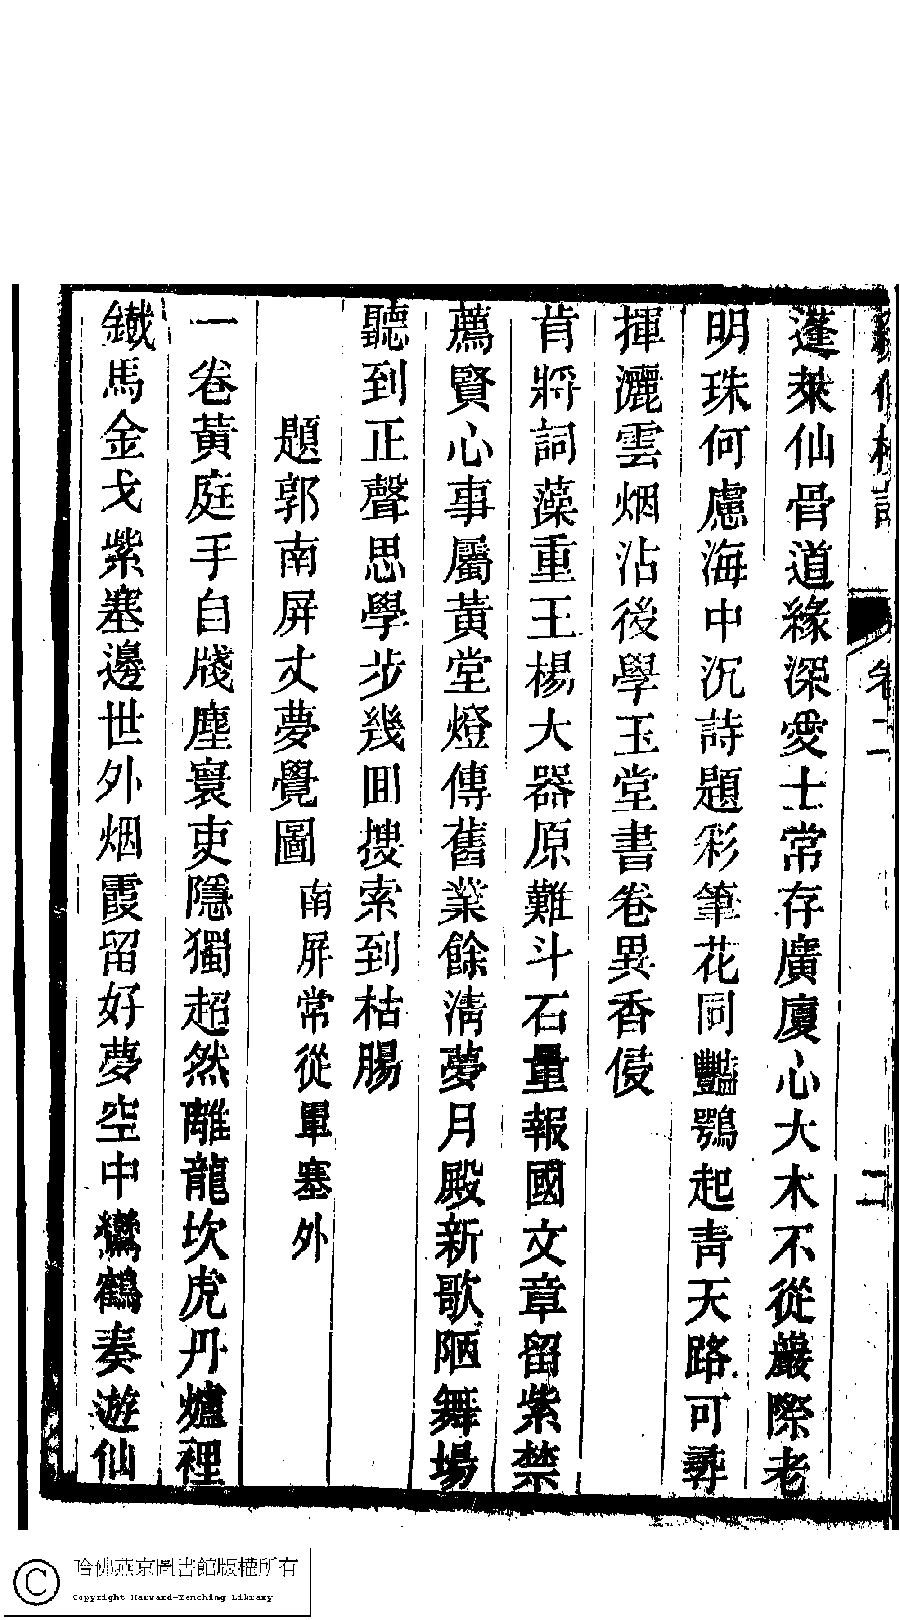 卷二
二
蓬萊仙骨道緣深愛士常存廣廈心大木不從巖際老
明珠何慮海中沉詩題彩筆花同豔鶚起青天路可尋
揮灑雲烟沾後學玉堂書卷異香侵
肯將詞藻重王楊大器原難斗石量報國文章留紫禁
薦賢心事屬黃堂燈傳舊業餘清夢月殿新歌陋舞場
聽到正聲思學步幾回搜索到枯腸
題郭南屏丈夢覺圖
南屏常從軍塞外
一卷黃庭手自牋塵寰吏隱獨超然離龍坎虎丹爐裡
鐵馬金戈紫塞邊世外烟霞留好夢空中鸞鶴奏遊仙
哈佛燕京圖書館版權所有
Copyright Harvard-Yenching Library